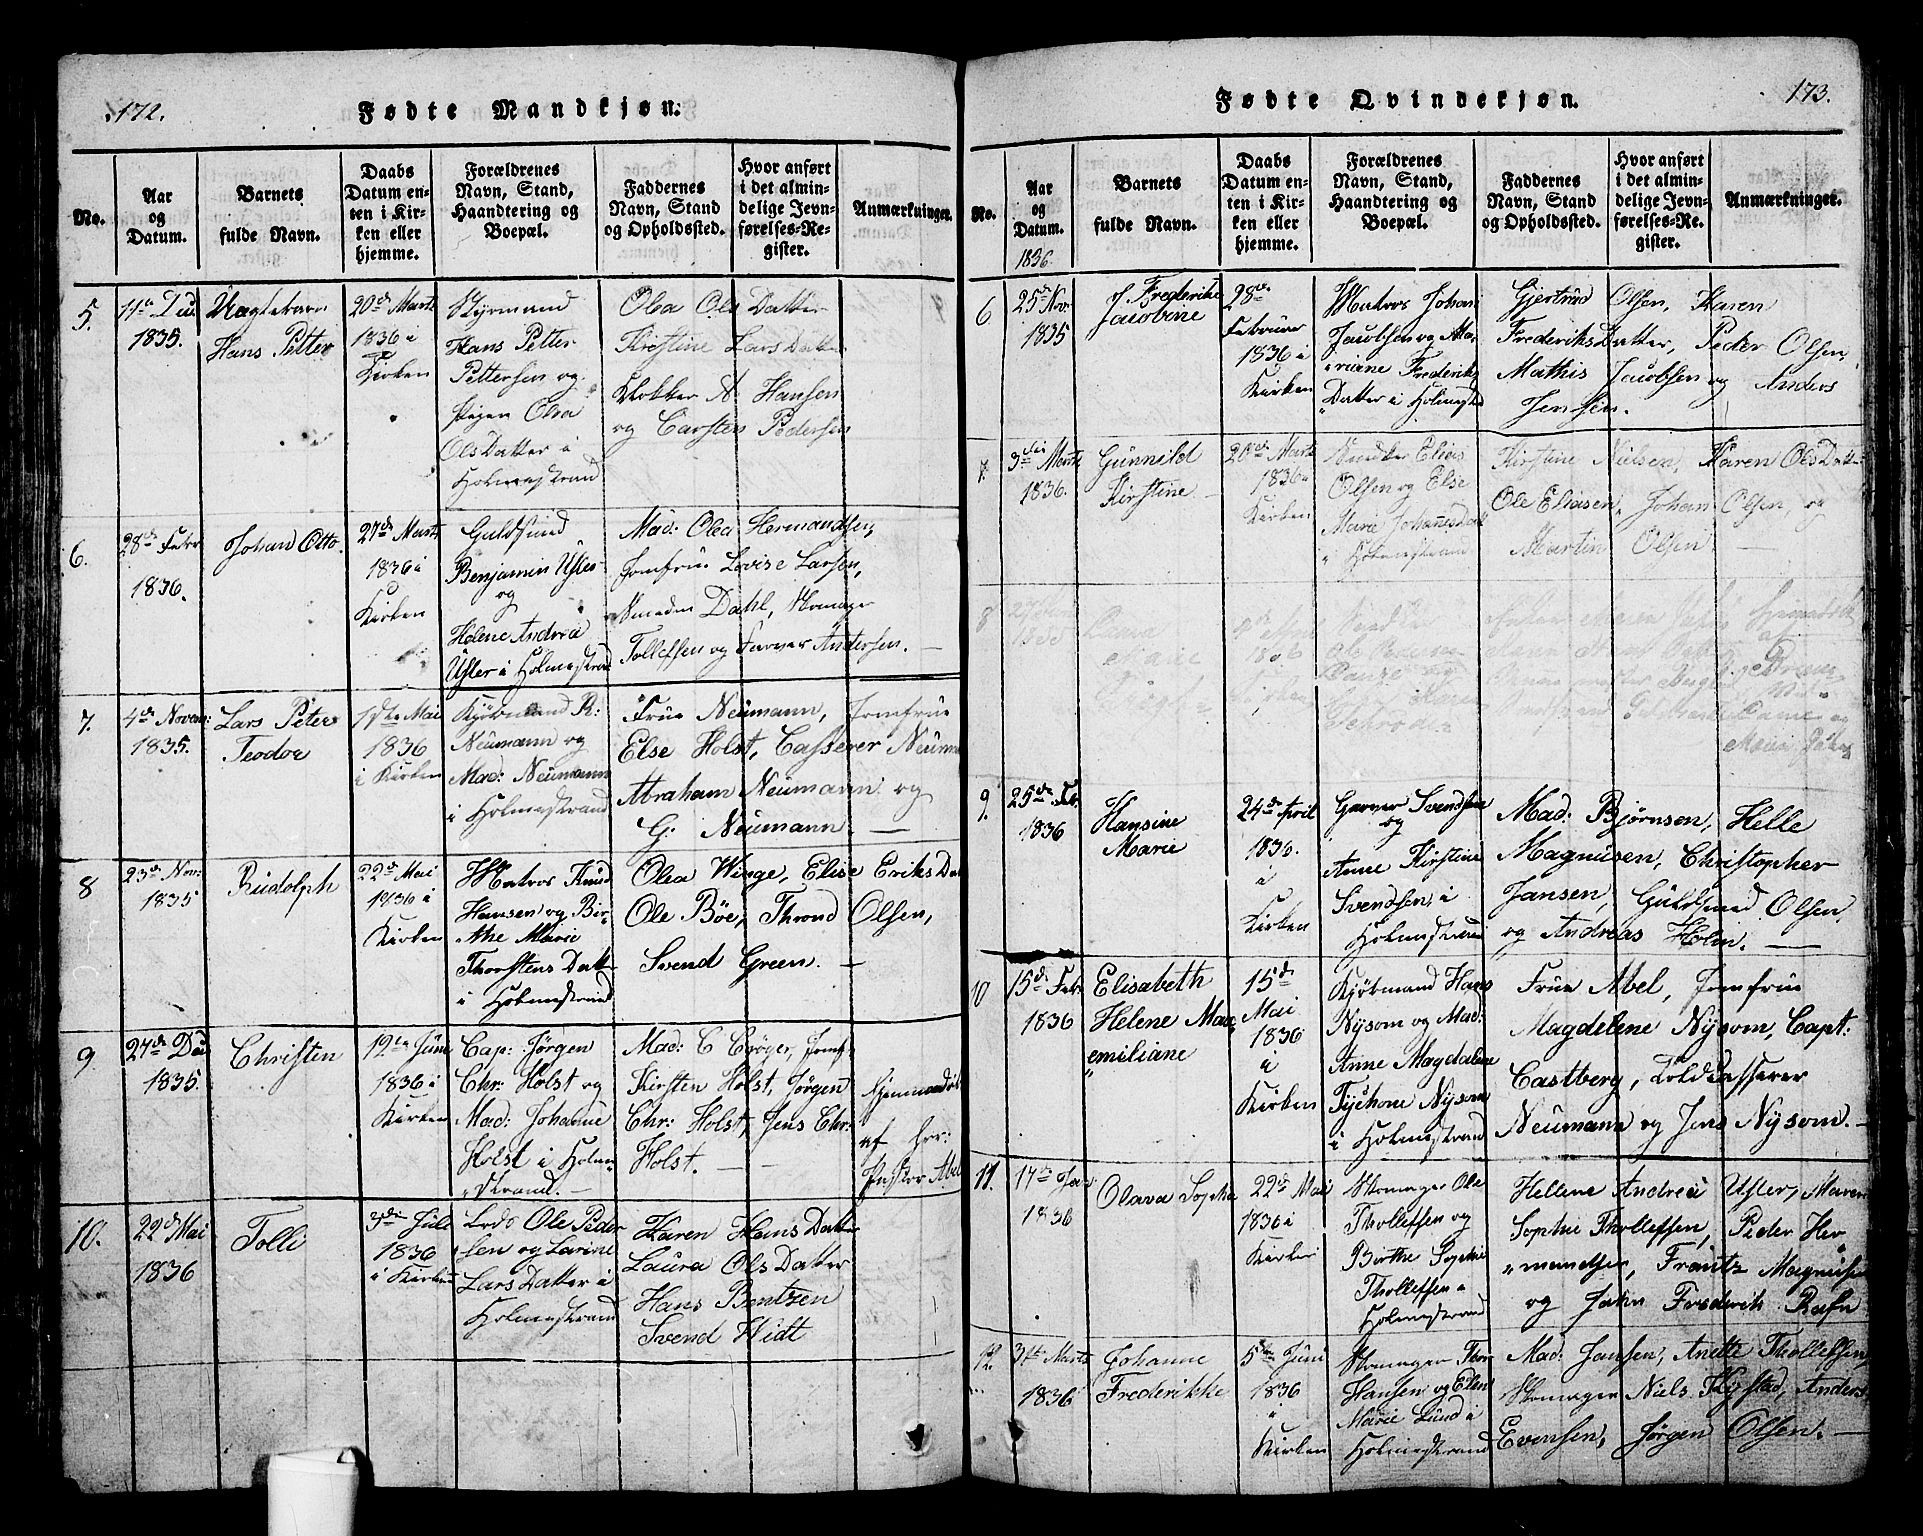 172.
Fødte Mandkjøn.
No.
Aar og Datum.
Barnets fulde Navn.
Daabs Datum enten i Kirken eller hjemme.
Forældrenes Navn, Stand, Haandtering og Boepæl.
Faddernes Navn, Stand og Opholdssted.
Hvor anført i det almindelige Jevnførelses-Register.
Anmærkninger.
5.
1835.
Hans Petter
20de Marts
1836 i
Kirken
Styrmand
Hans Petter
Pettersen og
Pigen Olea
OlsDatter i
Holmestrand
Olea Ols Datter
Kirstine Lars Datter
Klokker N Hansen
og Carsten Pedersen
6.
28de Febr
1836.
Johan Otto.
27de Marts
1836 i
Kirken
Guldsmed
Benjamin Usler
og
Helene Andrea
Usler i Holmestrand
Mad: Olea Hermandsen,
Jomfrue Lovise Larsen,
Smeden Dahl, Skomager
Tolleffsen og Farver Andersen. —
7.
4de Novem:
1835.
Lars Peter
Teodor
1ste Mai
1836
i Kirken
Kjøbmand R:
Neumann og
Mad: Neumann
i Holmestrand
Frue Neumann, Jomfrue
Else Holst, Casserer Neumann
Abraham Neumann og
G: Neumann —
8
23de Nov:
1835
Rudolph
22de Mai
1836 i
Kirken
Matros Knud
Hansen og Bir-
the Marie
Thorstens Datter
i Holmestrand
Olea Winge, Elise Eriks Dat
Ole Böe, Thrond Olsen,
Svend Green. —
9
27de
1835.
Christen
12te Juni
1836 i
Kirken
Cap: Jörgen
Chr: Holst og
Mad: Johanne
Holst i Holme-
strand. —
Mad: C Cröger, Jomf
Kirsten Holst, Jörgen
Chr: Holst, Jens Chr:
Holst. —
Hjemmedöbt
af Hr:
Pastor Abel
10.
22de Mai
1836
Tolli
3die Juli
1836
i Kirken
Lods Ole Peder
sen og Larine
Lars Datter i
Holmestrand
Karen Hans Datter
Laura Ols Datter
Hans Bentzen
Svend Hidt
173.
Fødte Qvindekjøn.
No.
Aar og Datum.
1836
Barnets fulde Navn.
Daabs Datum enten i Kirken eller hjemme.
Forældrenes Navn, Stand, Haandtering og Boepæl.
Faddernes Navn, Stand og Opholdssted.
Hvor anført i det almindelige Jevnførelses-Register.
Anmærkninger.
6
25de Nov:
1835
Frederikke
Jacobine
28de
Februar
1836 i
Kirken
Matros Johan
Jacobsen og Ma-
riane Frederiks
Datter i Holmestrand
Gjertrud Olsen, Karen
FrederiksDatter, Peder Olsen,
Mathis Jacobsen og Anders
Jensen.
7.
3die Marts
1836.
Gunnild
Kirstine
20de Marts
1836 i
Kirken
Snedker Elias
Olsen og Else
Marie Johannesdatt
i Holmestrand
Kirstine Nielsen, Karen OlsDatter
Ole Eliasen, Johan Olsen, og
Martin Olsen. —
8
Marie
Snedker
9.
25de Feb.
1836
Hansine
Marie
24de April
1836.
i
Kirken
Garver Svendsen
og
Anne Kirstine
Svendsen i
Holmestrand
Mad: Björnsen, Helle
Magnusen, Christopher
Jansen, Guldsmed Olsen
og Andreas Holm. —
10
15de Feb.
1836
Elisabeth
Helene Max-
emiliane
15de
Mai
1836
i
Kirken
Kjöbmand Hans
Nysom og Mad:
Anne Magdalene
Tychone Nysom
i Holmestrand
Frue Abel, Jomfrue
Magdelene Nysom, Capt:
Castberg, Toldcasserer
Neumann og Jens Nysom. —
11.
17de Jan
1836
Olava Sophie
22de Mai
1836 i
Kirken
Skomager Ole
Tholleffsen og
Birthe Sophie
Tholleffsen i
Holmestrand
Hellene Andrea Usler, Maren
Sophie Tholleffsen, Peder Her-
mandsen, Frantz Magnusen
og Jahn Frederik Rafn
12.
31te Marts
1836
Johanne
Frederikke
5de Juni
1836
i
Kirken
Skomager Thor
Hansen og Elen
Marie Lund i
Holmestrand
Mad: Jansen, Anette Tholleffsen,
Skomager Niels Kystad, Anders
Evensen, Jörgen Olsen. —